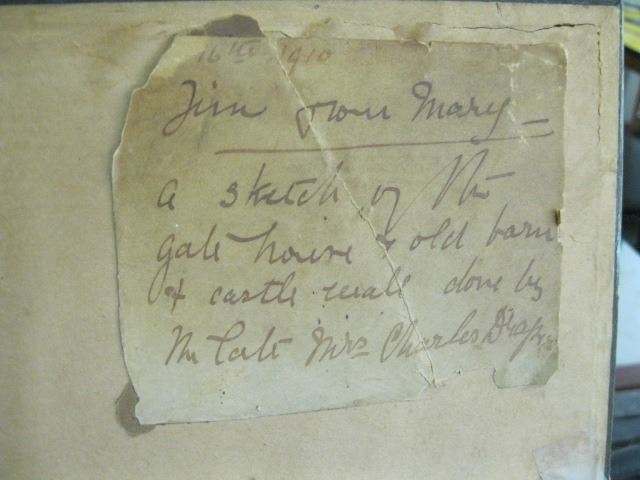 16th 1910
Jim from Mary
a sketch of the
gate house & old barn
& castle wall done by
the late Mrs Charles Draper